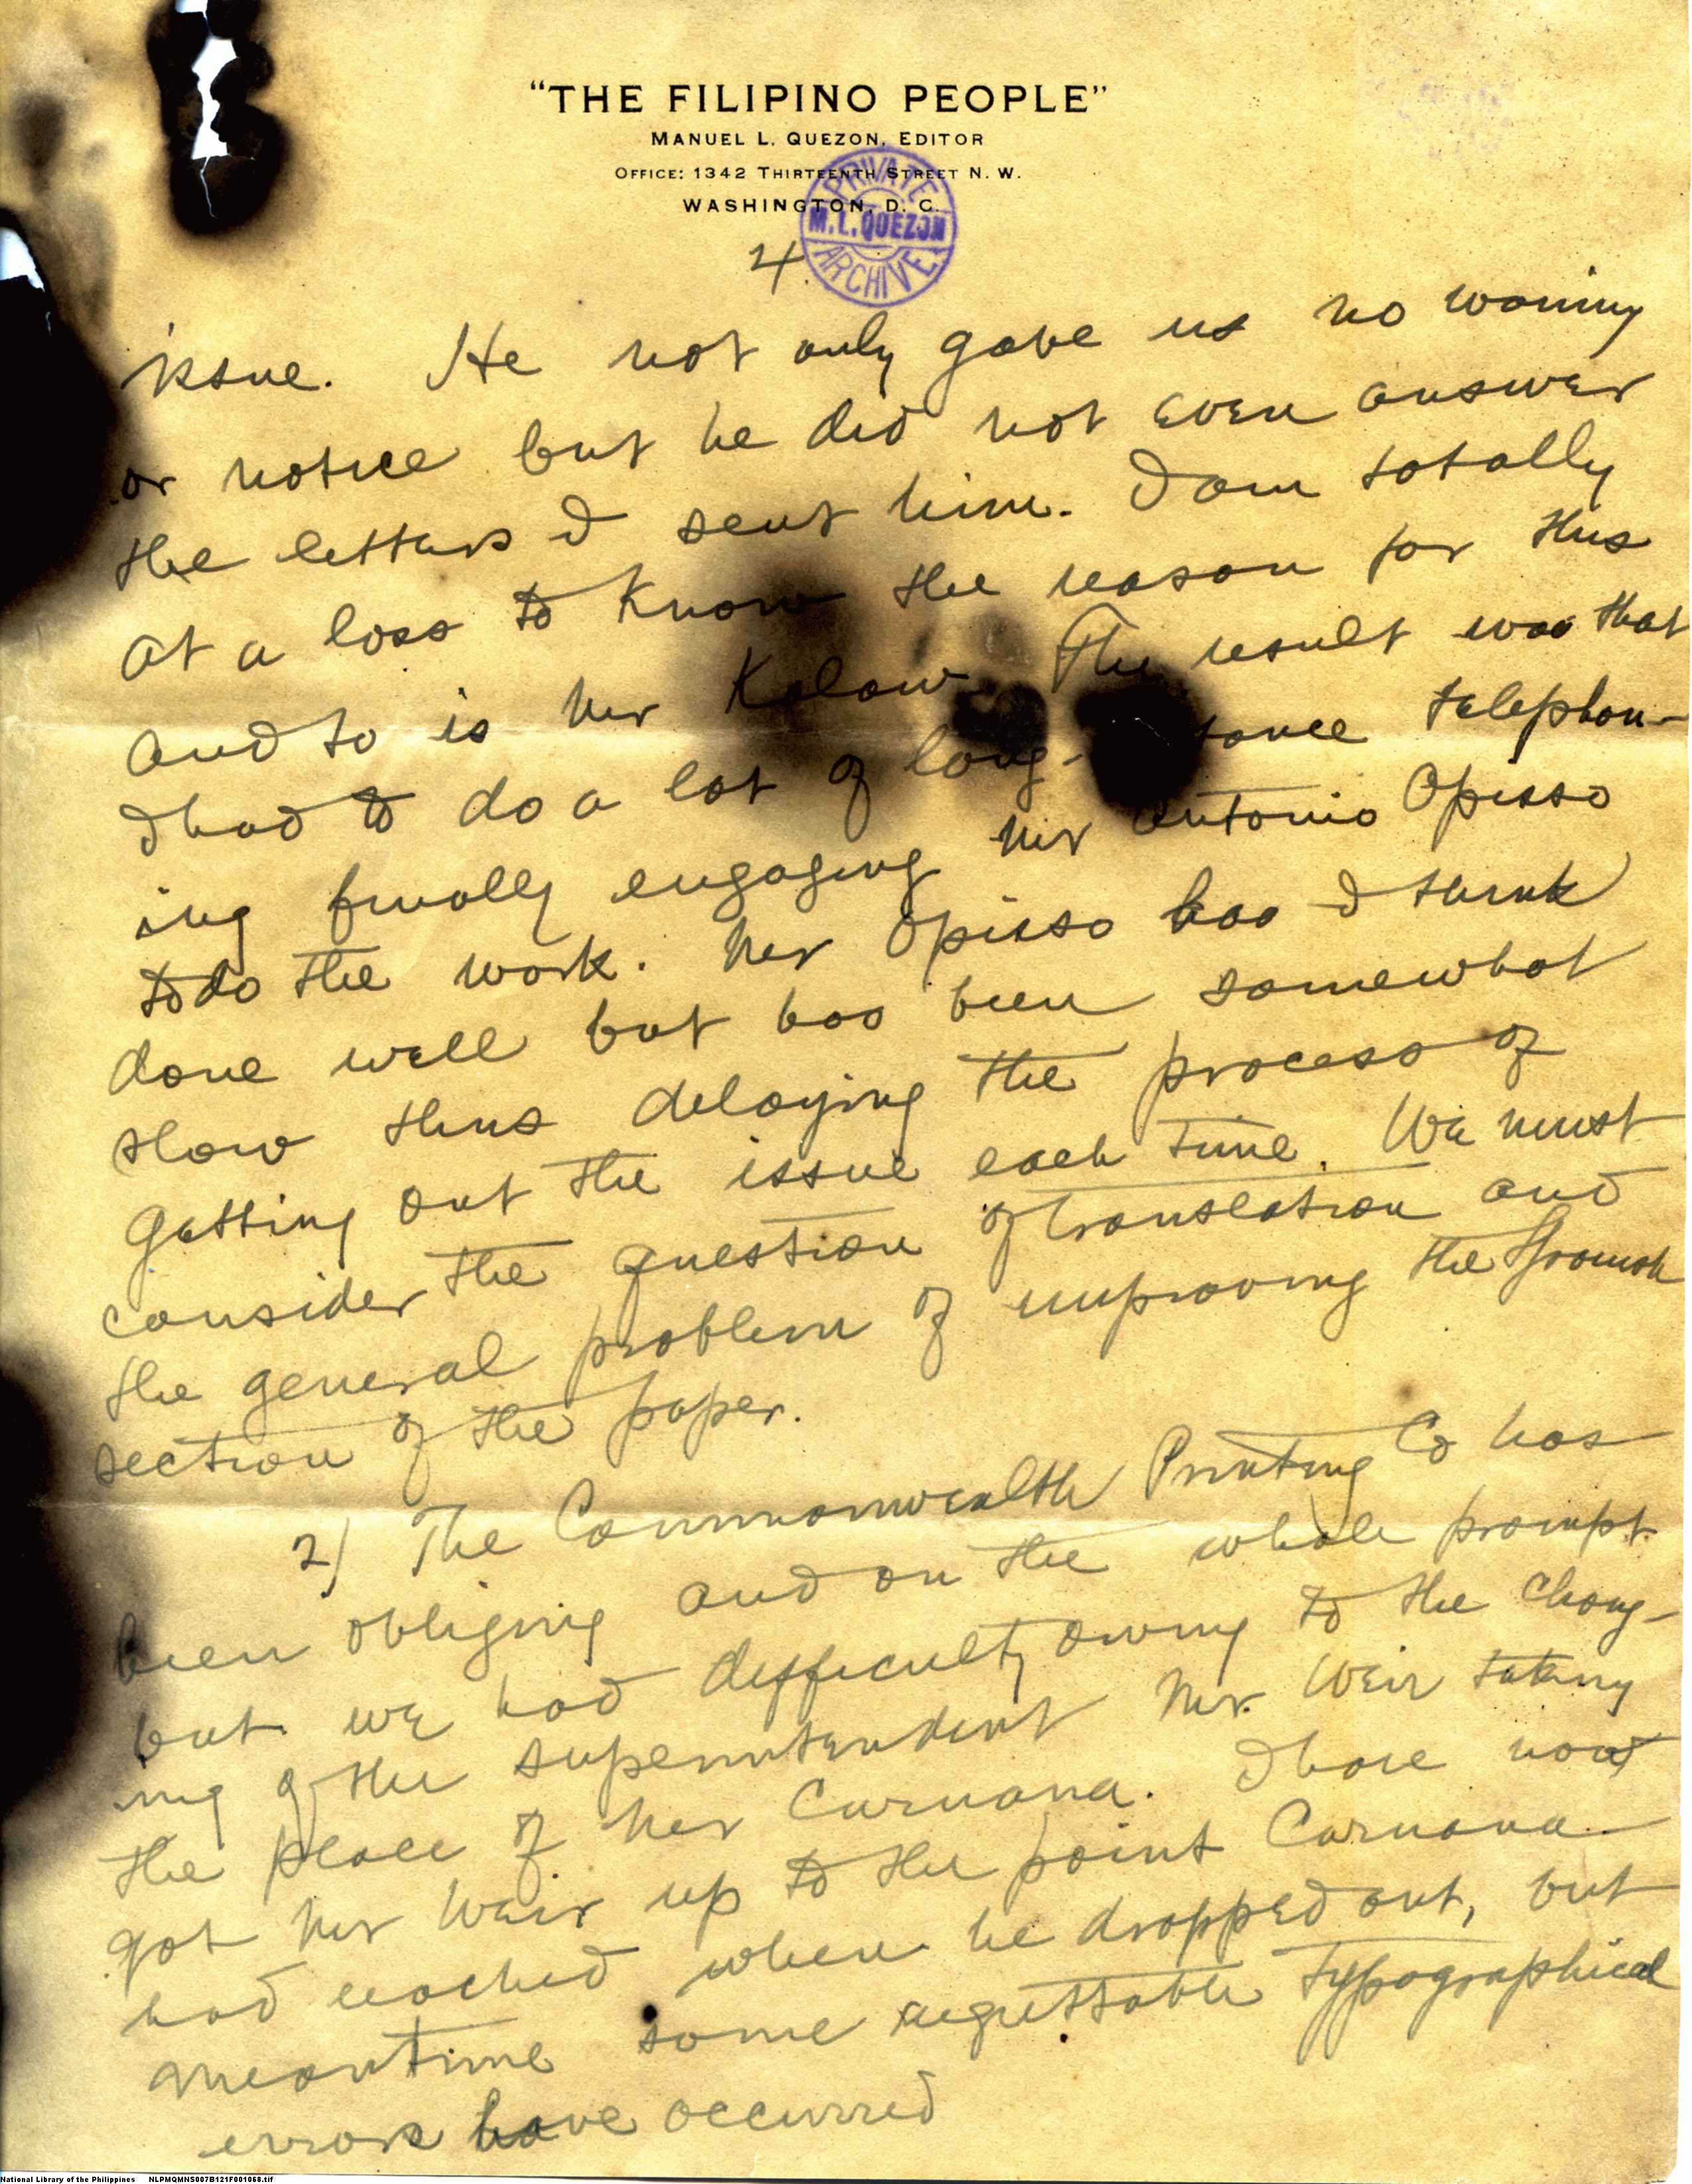 "THE FILIPINO PEOPLE"
MANUEL L. QUEZON, EDITOR
OFFICE: 1342 THIRTEENTH STREET N. W.
WASHINGTON, D. C.
PRIVATE
M. L. QUEZON
ARCHIVE
4.
issue. He not only gave us no warning
or notice but he did not even answer
the letters I sent him. I am totally
at a loss to know the reason for this
and so is Mr Kalaw. The result was that
I had to do a lot of long- tance telephon-
ing finally engaging Mr Antonio Opisso
to do the work. Mr Opisso has I think
done well but has been somewhat
slow thus delaying the process of
getting out the issue each time. We must
consider the question of translation and
the general problem of improving the Spanish
section of the paper.
2) The Commonwealth Printing Co has
been obliging and on the whole prompt
but we had difficulty owing to the chang-
ing of the superintendent Mr. Weir taking
the place of Mr Caruana. I have now
got Mr Weir up to the point Caruana
had reached when he dropped out, but
meantime some regrettable typographical
errors have occurred
National Library of the Philippines NLPMQMNS007B121F001068.tif